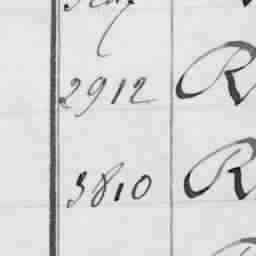 2912 R
3810 R